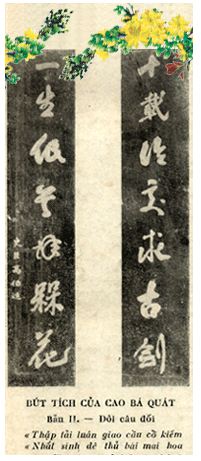 十載論交求古劍
一生低首拜楳花
BÚT TÍCH CỦA CAO BÁ QUÁT
Bản II. — Đôi câu đối
« Thập tải luân giao cầu cổ kiếm
« Nhất sinh đê thủ bái mai hoa